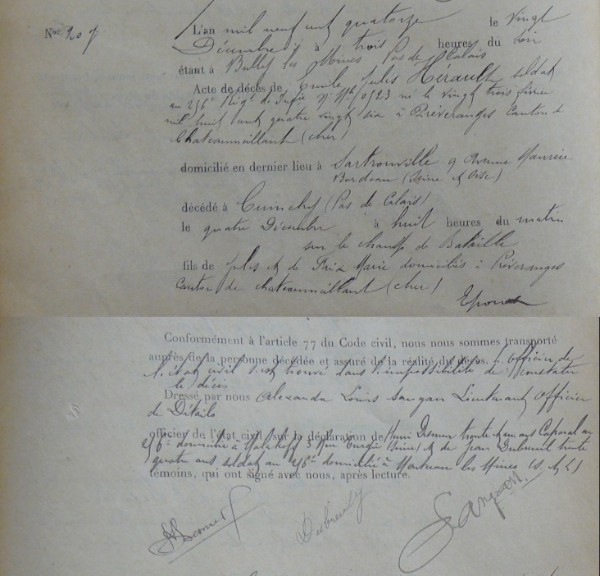 L'an mil neuf cent quatorze le vingt
N° 207
Décembre à trois heures du soir
étant à Bully les Mines Pas de Calais
Acte de décès de Emile Jules Hérault soldat
au 256e Rég. de Infie né le vingt trois
mil huit cent quatre vingt six à Préveranges Canton de
Chateaumeillant (cher)
domicilié en dernier lieu à Sartrouville 9 Avenue Maurice
Bordeau (Seine & Oise)
décédé à Cuinchy (Pas de Calais)
le quatre Décembre à huit heures du matin
sur le champ de Bataille
fils de Jules & de Marie domiciliés à Préveranges
Canton de chateaumeillant (cher)
Conformément à l'article 77 du Code civil, nous nous sommes transporté
auprès de la personne décédée et assuré de la réalité du décès. L'officier de
l'état civil s'est trouvé dans l'impossibilité de constater
le décès
Dressé par nous Alexandre Louis Sangan Lieutenant Officier
de Détails
officier de l'état civil sur la déclaration de Henri trente ans Caporal au
256e domicilié à Malakoff 3 Rue (Seine) & de Jean Dubreuil trente
quatre ans soldat au 256e domicilié à Montceau les Mines (S. & L.)
témoins, qui ont signé avec nous, après lecture.
Dubreuil
Sangan